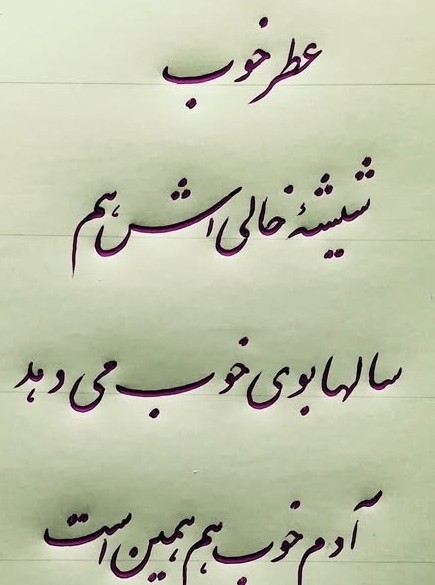 عطر خوب
شیشهٔ خالی اش هم
سالها بوی خوب می دهد
آدم خوب هم همین است